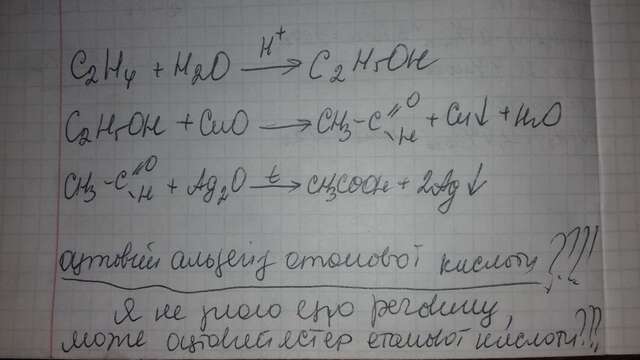 C₂H₄ + H₂O —H⁺→ C₂H₅OH
C₂H₅OH + CuO → CH₃-C(=O)-H + Cu↓ + H₂O
CH₃-C(=O)-H + Ag₂O —t→ CH₃COOH + 2Ag↓
оцтовий альдегід етанової кислоти???!
Я не знаю цю речовину,
може оцтовий естер етанової кислоти???